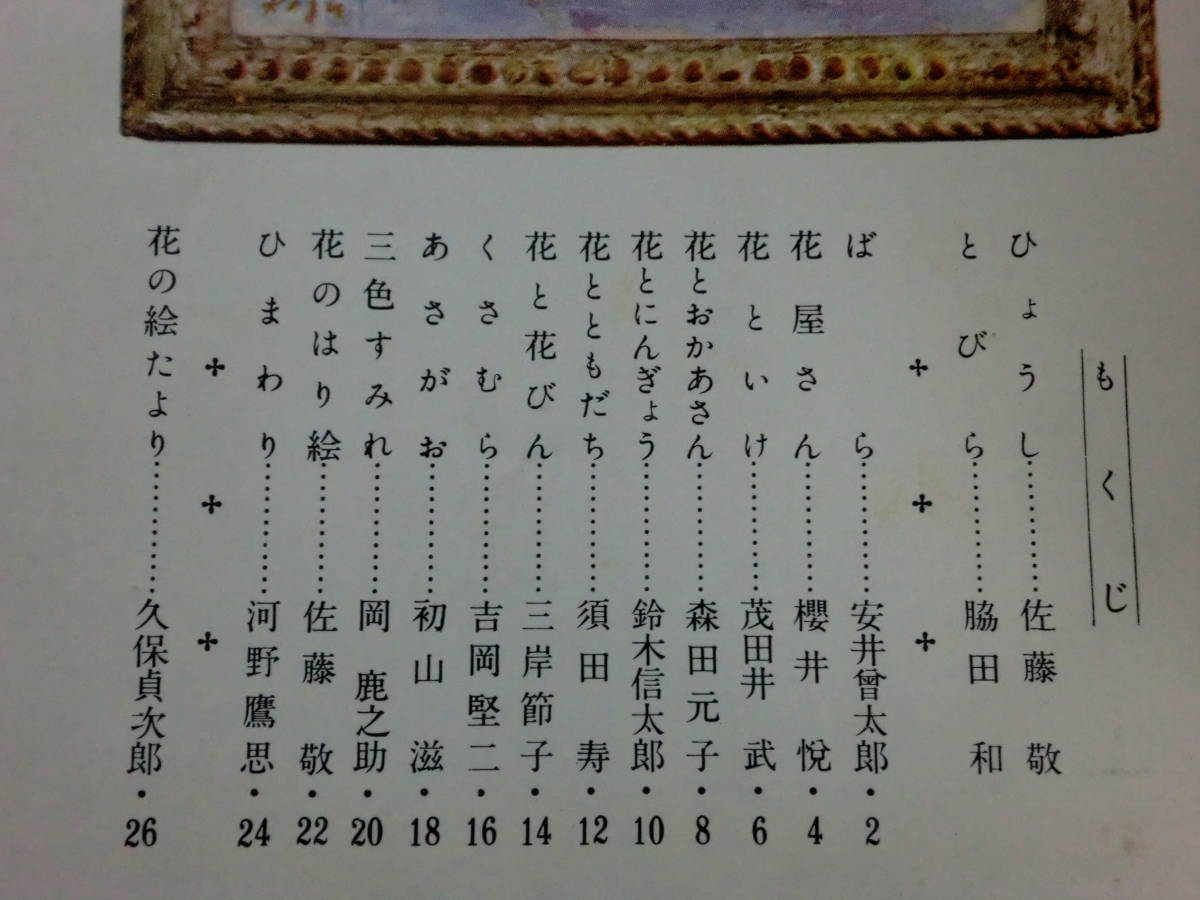 もくじ
ひょうし…………佐藤敬
とびら…………脇田和
ばら…………安井曾太郎・2
花屋さん…………櫻井悅・4
花といけ…………茂田井武・6
花とおかあさん…………森田元子・8
花とにんぎょう…………鈴木信太郎・10
花とともだち…………須田寿・12
花と花びん…………三岸節子・14
くさむら…………吉岡堅二・16
あさがお…………初山滋・18
三色すみれ…………岡鹿之助・20
花のはり絵…………佐藤敬・22
ひまわり…………河野鷹思・24
花の絵たより…………久保貞次郎・26